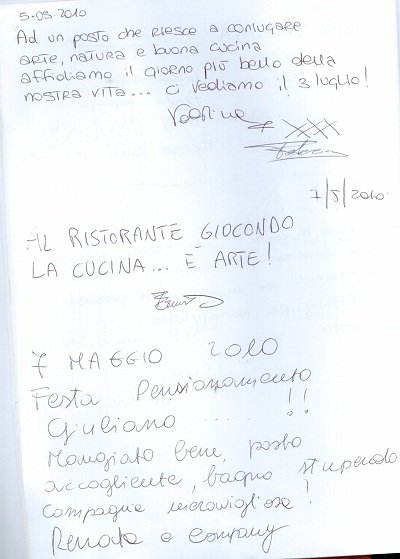 5.05.2010
Ad un posto che riesce a coniugare
arte, natura e buona cucina
affidiamo il giorno più bello della
nostra vita... ci vediamo il 3 luglio!
+ XXX
7/5/2010
AL RISTORANTE GIOCONDO
LA CUCINA... È ARTE!
7 MAGGIO 2010
Festa Pensionamento
Giuliano ..... !!
Mangiato bene, posto
accogliente, bagno stupendo
compagnia meravigliosa!
Renata e company